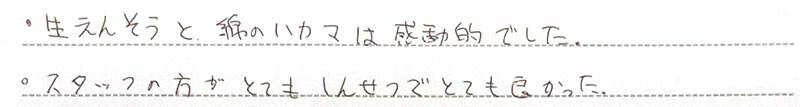 ・生えんそうと、錦のハカマは感動的でした。
○スタッフの方がとてもしんせつでとても良かった。